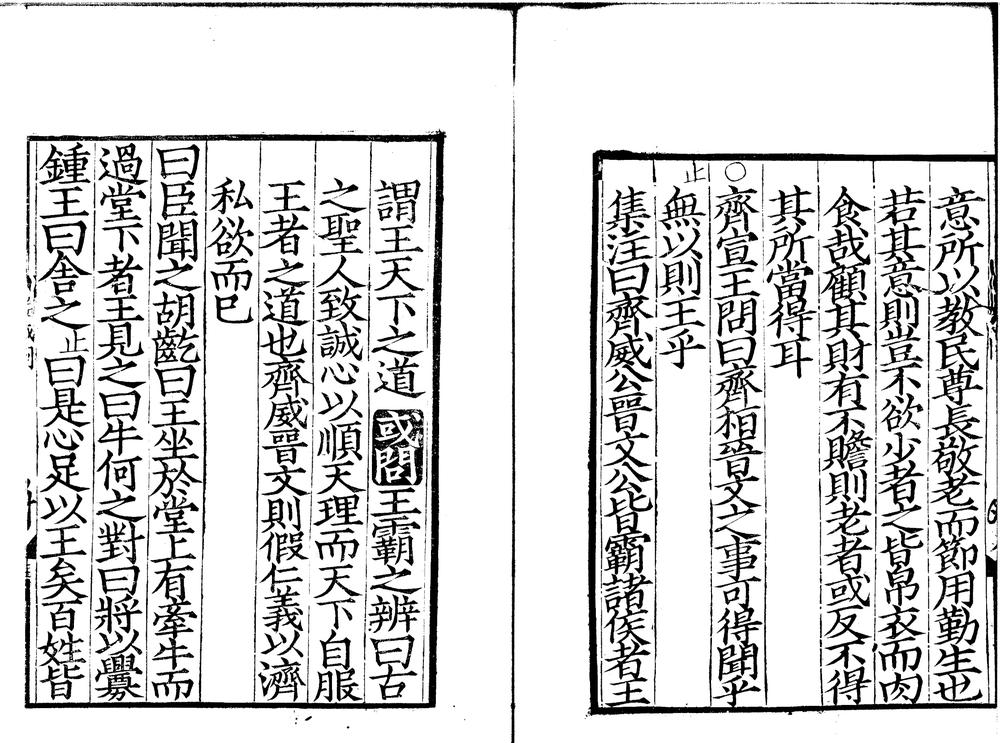 意所以教民尊長敬老而節用勤生也
若其意則豈不欲少者之皆帛衣而肉
食哉顧其財有不贍則老者或反不得
其所當得耳
○齊宣王問曰齊桓晉文之事可得聞乎
止無以則王乎
集注曰齊威公晉文公皆霸諸侯者王
謂王天下之道 或問 王霸之辨曰古
之聖人致誠心以順天理而天下自服
王者之道也齊威晉文則假仁義以濟
私欲而已
曰臣聞之胡齕曰王坐於堂上有牽牛而
過堂下者王見之曰牛何之對曰將以釁
鍾王曰舍之止曰是心足以王矣百姓皆